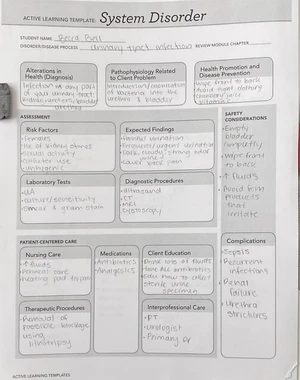 ACTIVE LEARNING TEMPLATE: System Disorder
STUDENT NAME
DISORDER/DISEASE PROCESS urinary tract infection REVIEW MODULE CHAPTER
Alterations in
Health (Diagnosis)
Infection in any part
of your urinary tract:
kidneys, ureters, bladder
urethra
Pathophysiology Related
to Client Problem
of bacteria into the
urethra & bladder
Health Promotion and
Disease Prevention
wipe front to back
Avoid tight clothing
cranberry juice
vitamin C
ASSESSMENT
SAFETY
CONSIDERATIONS
Risk Factors
females
hx of kidney stones
sexual activity
catheter use
unhygienic
Expected Findings
Painful urination
Frequent/urgent urination
dark, cloudy, strong odor
urine
Lower back pain
•Empty
bladder
completely
•wipe front
to back
•↑ fluids
•Avoid fem
products
that
irritate
Laboratory Tests
•UA
•culture/sensitivity
•smear & gram stain
Diagnostic Procedures
•Ultrasound
•CT
•MRI
•cystoscopy
PATIENT-CENTERED CARE
Complications
Nursing Care
•↑ fluids
•Perineal care
•heating pad for pain
Medications
•Antibiotics
•Analgesics
Client Education
•Drink lots of fluids
•take ALL antibiotics
sterile urine
specimen
•Sepsis
•Recurrent
infections
•Renal
failure
•Urethra
strictures
Therapeutic Procedures
•Removal of
possible blockage
using
lithotripsy
Interprofessional Care
•PT
•Urologist
•Primary Dr
ACTIVE LEARNING TEMPLATES